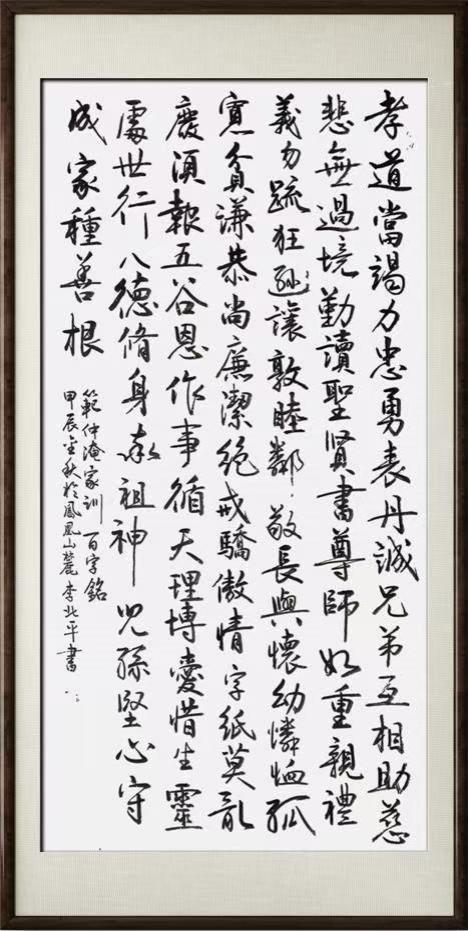 孝道當竭力忠勇表丹誠兄弟互相助慈
悲無過境勤讀聖賢書尊師如重親禮
義勿疏狂遜讓敦睦鄰敬長與懷幼憐恤孤
寡貧謙恭尚廉潔絕戒驕傲情字紙莫亂
廢須報五谷恩作事循天理博愛惜生靈
處世行八德脩身奉祖神兒孫堅心守
成家種善根
範仲淹家訓 百字銘
甲辰金秋於鳳凰山麓李北平書